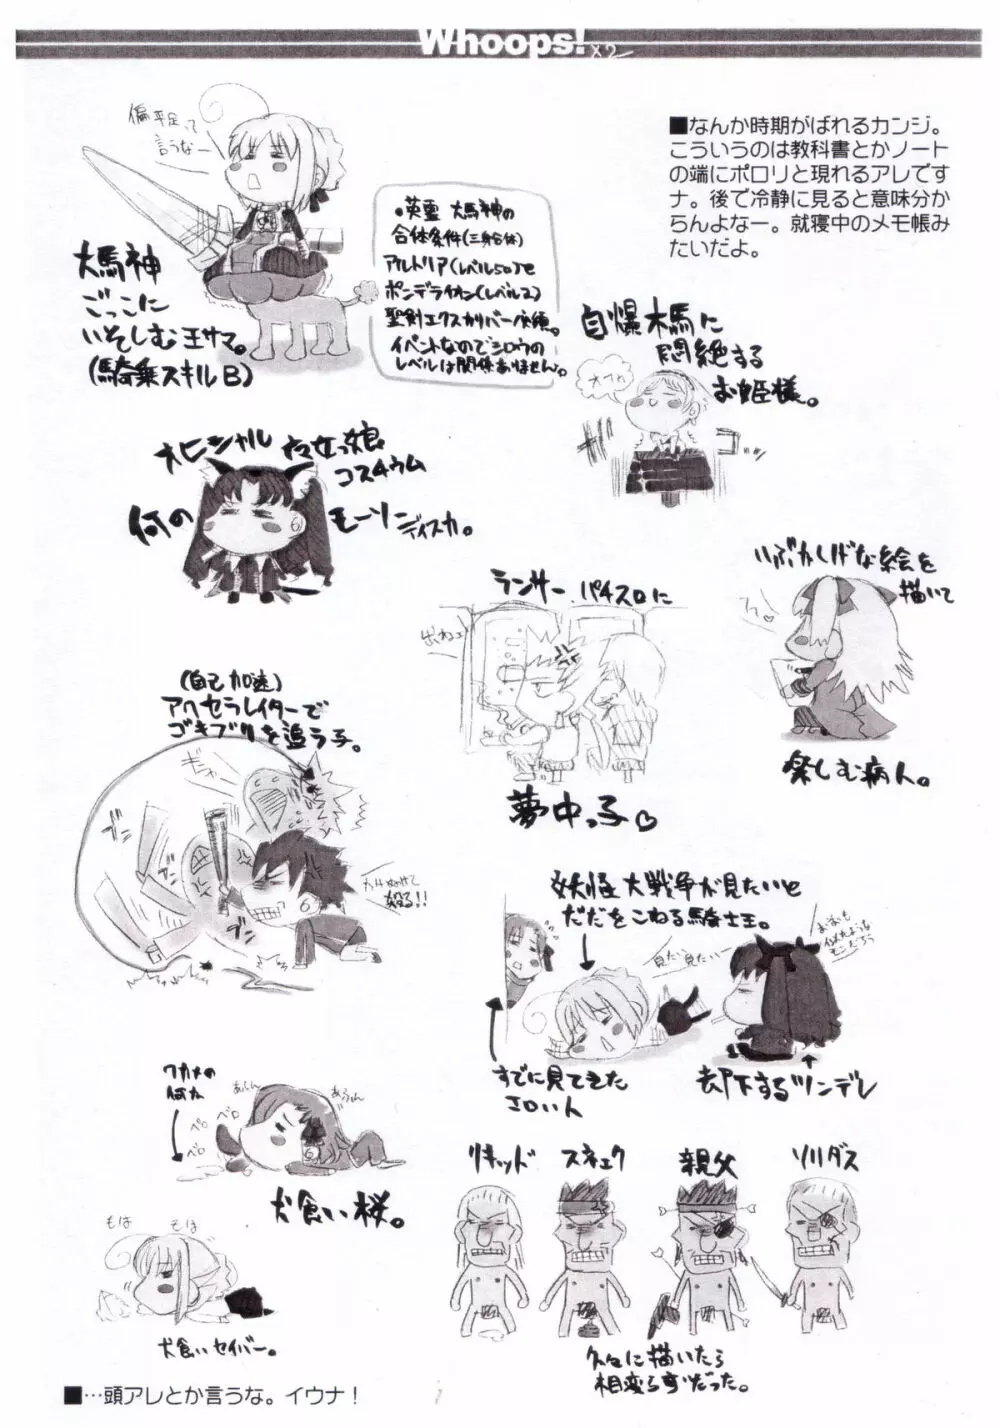 Whoops! ×2
■なんか時期がばれるカンジ。
こういうのは教科書とかノート
の端にポロリと現れるアレです
ナ。後で冷静に見ると意味分か
らんよなー。就寝中のメモ帳み
たいだよ。
偏平足って
言うなー
大馬神
ごっこに
いそしむ王サマ。
(騎乗スキルB)
・英霊 大馬神の
合体条件(三身合体)
アルトリア(レベル50)と
ポンデライオン(レベル2)
聖剣エクスカリバー
イベントなのでシロウの
レベルは関係ありません。
自爆木馬に
悶絶する
お姫様。
オフゥ
オヒシャル
コスチウム
何の
モーソンディスカ。
いぶかしげな絵を
描いて
フフ♡
楽しむ病人。
ランサー パチスロに
出ねェ
夢中っ子♡
(自己加速)
アクセラレイターで
ゴキブリを追う子。
ギャー
殴る!!
妖怪大戦争が見たいと
だだをこねる騎士王。
見たい見たいー
すでに見てきた
エロい人
却下するツンデレ
ワカメの
何か
ペロ
ペロ
ペロ
犬食い桜。
もは
もは
犬食いセイバー。
リキッド
スネェク
親父
ソリダス
久々に描いたら
相変らずだった。
■…頭アレとか言うな。イウナ!